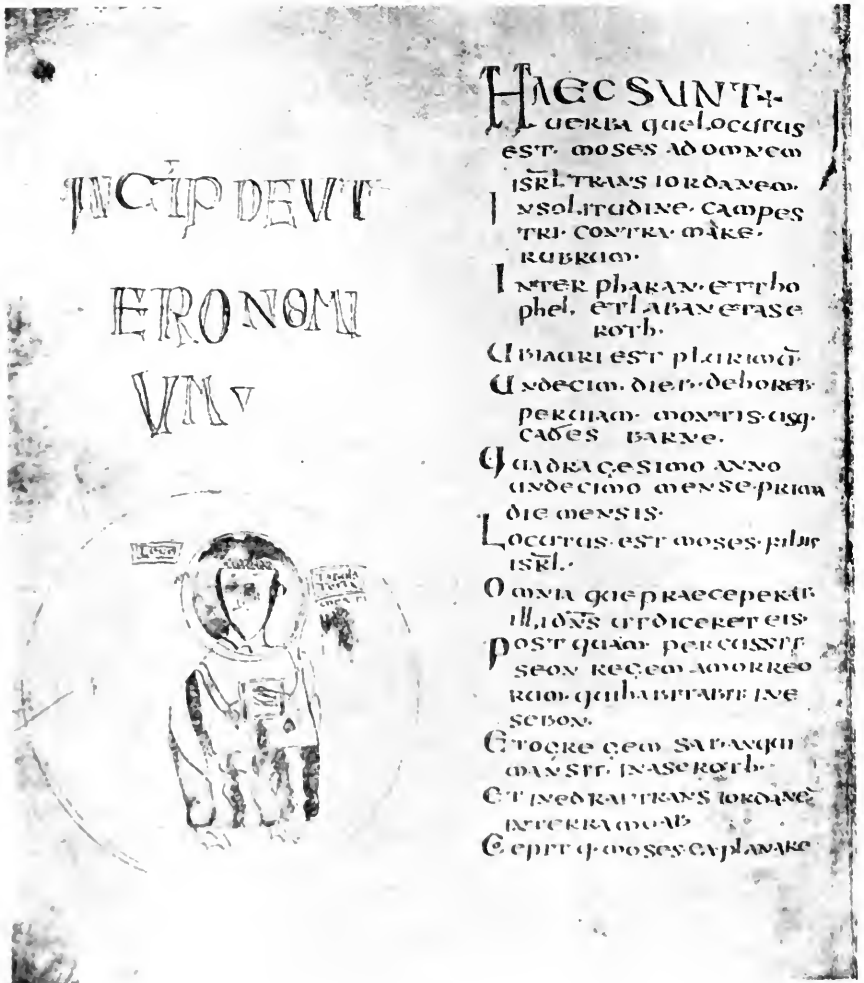 INCIP DEUT
ERONOMI
UM
HAEC SUNT
uerba que locutus
est· moses ad omnem
isrl trans iordanem·
Insolitudine· campes
tri· contra· mare·
rubrum·
Inter pharan· ettho
phel, etlaban etase
roth·
Ubiauri est plurimū
Undecim· dieb· dehoreb·
peruiam· montis· usq·
cades barne·
Quadragesimo anno
undecimo mense· primā
die mensis·
Locutus· est moses· filiis
isrl·
Omnia que praeceperat
illi dns utdiceret eis·
Post quam· percussit
seon regem amorreo
rum· quihabitabit ine
sebon·
Etogre gem
mansit· inaseroth·
Et inedrai trans iordanē
interra moab
Cepit q· moses· explanare